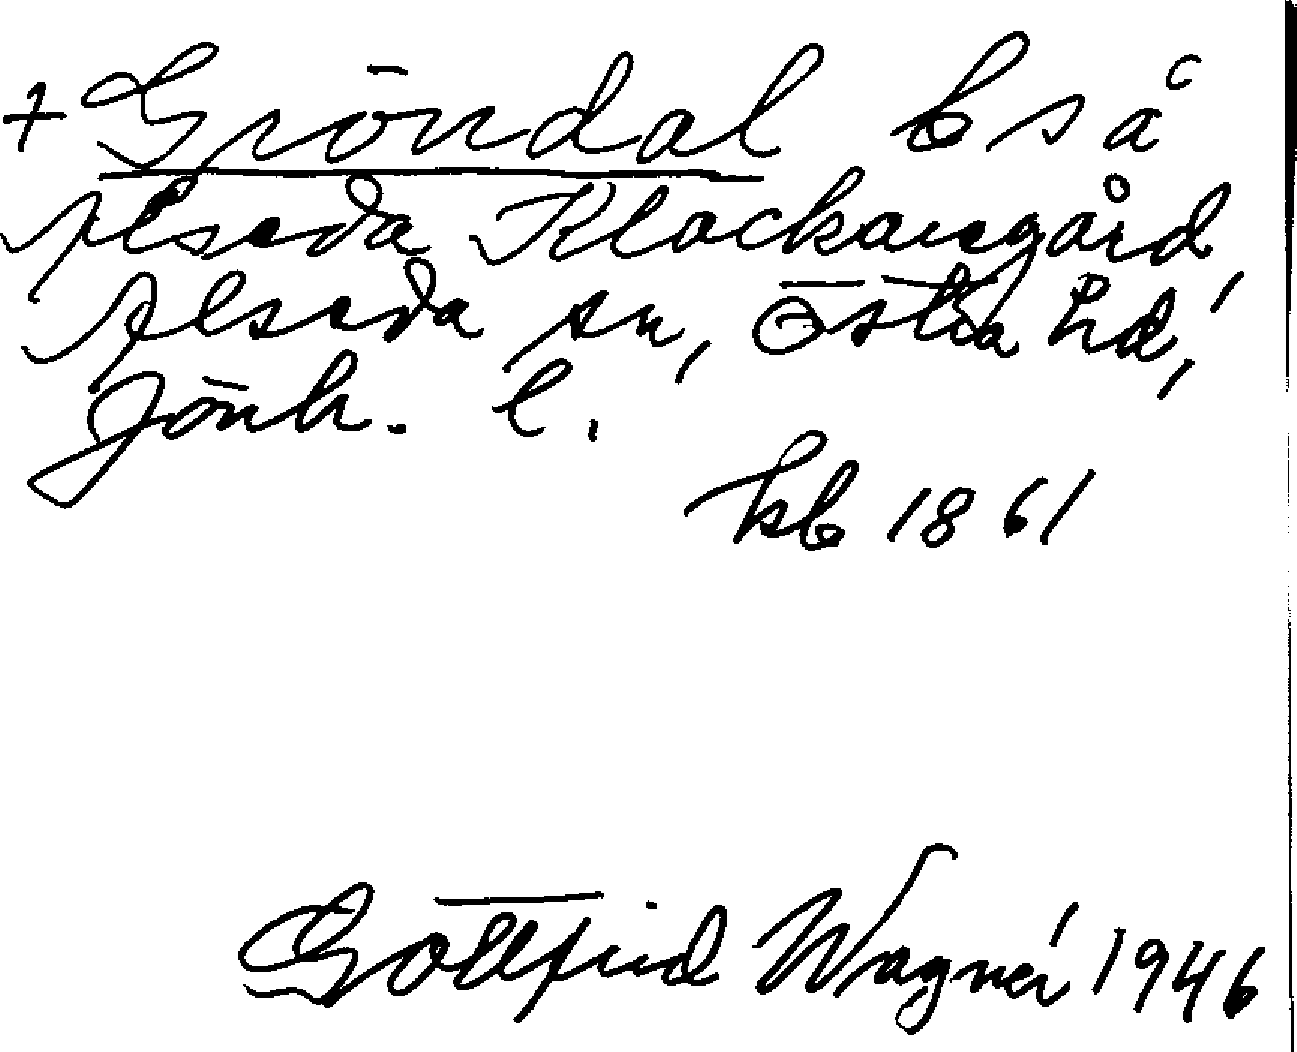 + Gröndal bs å
Alseda Klockaregård,
Alseda sn, Östra hd,
Jönk. l.
kb 1861
Gottfrid Wagnér 1946